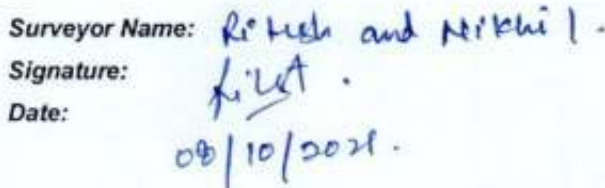 Surveyor Name: Ritesh and Nikhil.
Signature:
Date:
08/10/2021.